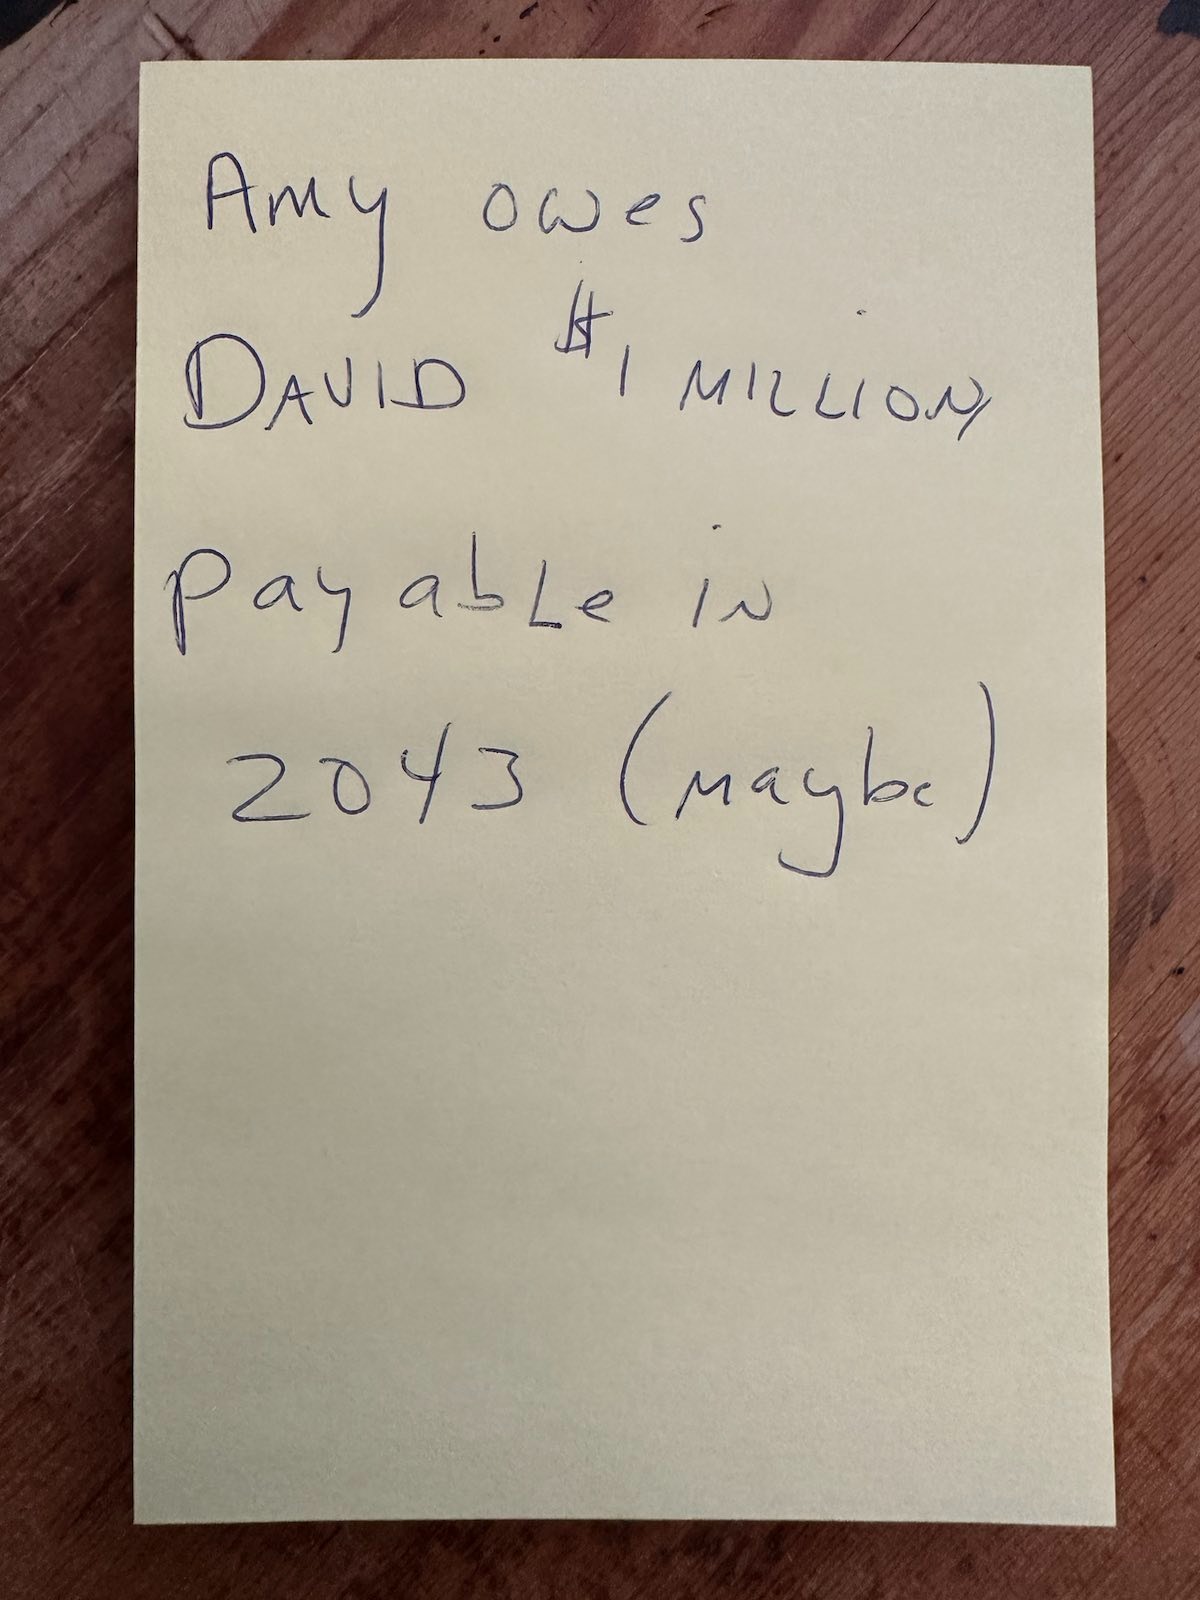 Amy owes
DAVID $1 MILLION
payable in
2043 (maybe)